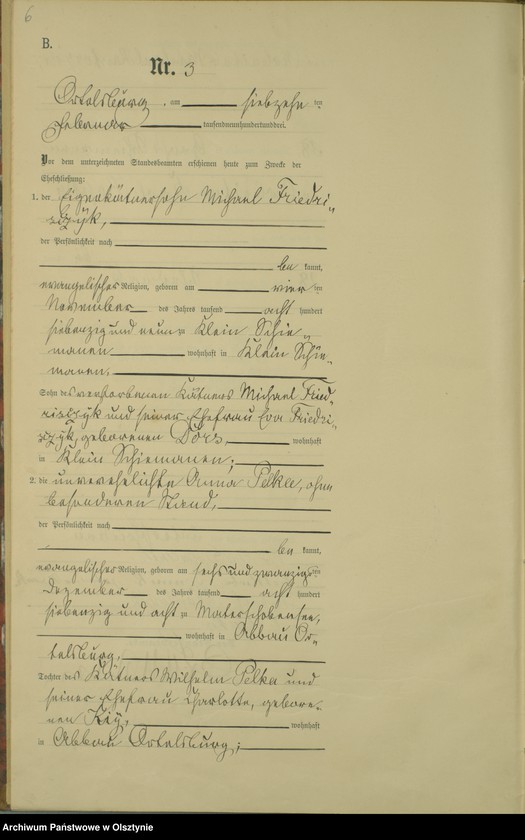 6
B.
Nr. 3
Ortelsburg, am siebzehn ten
Februar tausendneunhundertunddrei.
Vor dem unterzeichneten Standesbeamten erschienen heute zum Zwecke der
Eheschließung:
1. der Eigenkätnersohn Michael Friedri-
szzyk,
der Persönlichkeit nach
be kannt,
evangelischer Religion, geboren am vier ten
November des Jahres tausend acht hundert
siebenzig und neun zu Klein Schie-
manen wohnhaft in Klein Schie-
manen.
Sohn des verstorbenen Kätners Michael Fried-
riszzyk und seiner Ehefrau Eva Friedri-
szzyk, geborenen wohnhaft
in Klein Schiemanen;
2. die unverehelichte Anna Pelka, ohne
besonderen Stand,
der Persönlichkeit nach
be kannt,
evangelischer Religion, geboren am sechs und zwanzigsten
Dezember des Jahres tausend acht hundert
siebenzig und acht zu Materschobensee,
wohnhaft in Abbau Or-
telsburg.
Tochter des Kätners Wilhelm Pelka und
seiner Ehefrau Charlotte, gebore-
nen wohnhaft
in Abbau Ortelsburg;
Archiwum Państwowe w Olsztynie